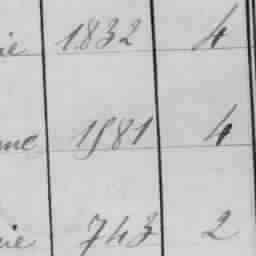 ie 1832 4
me 1981 4
rie 743 2